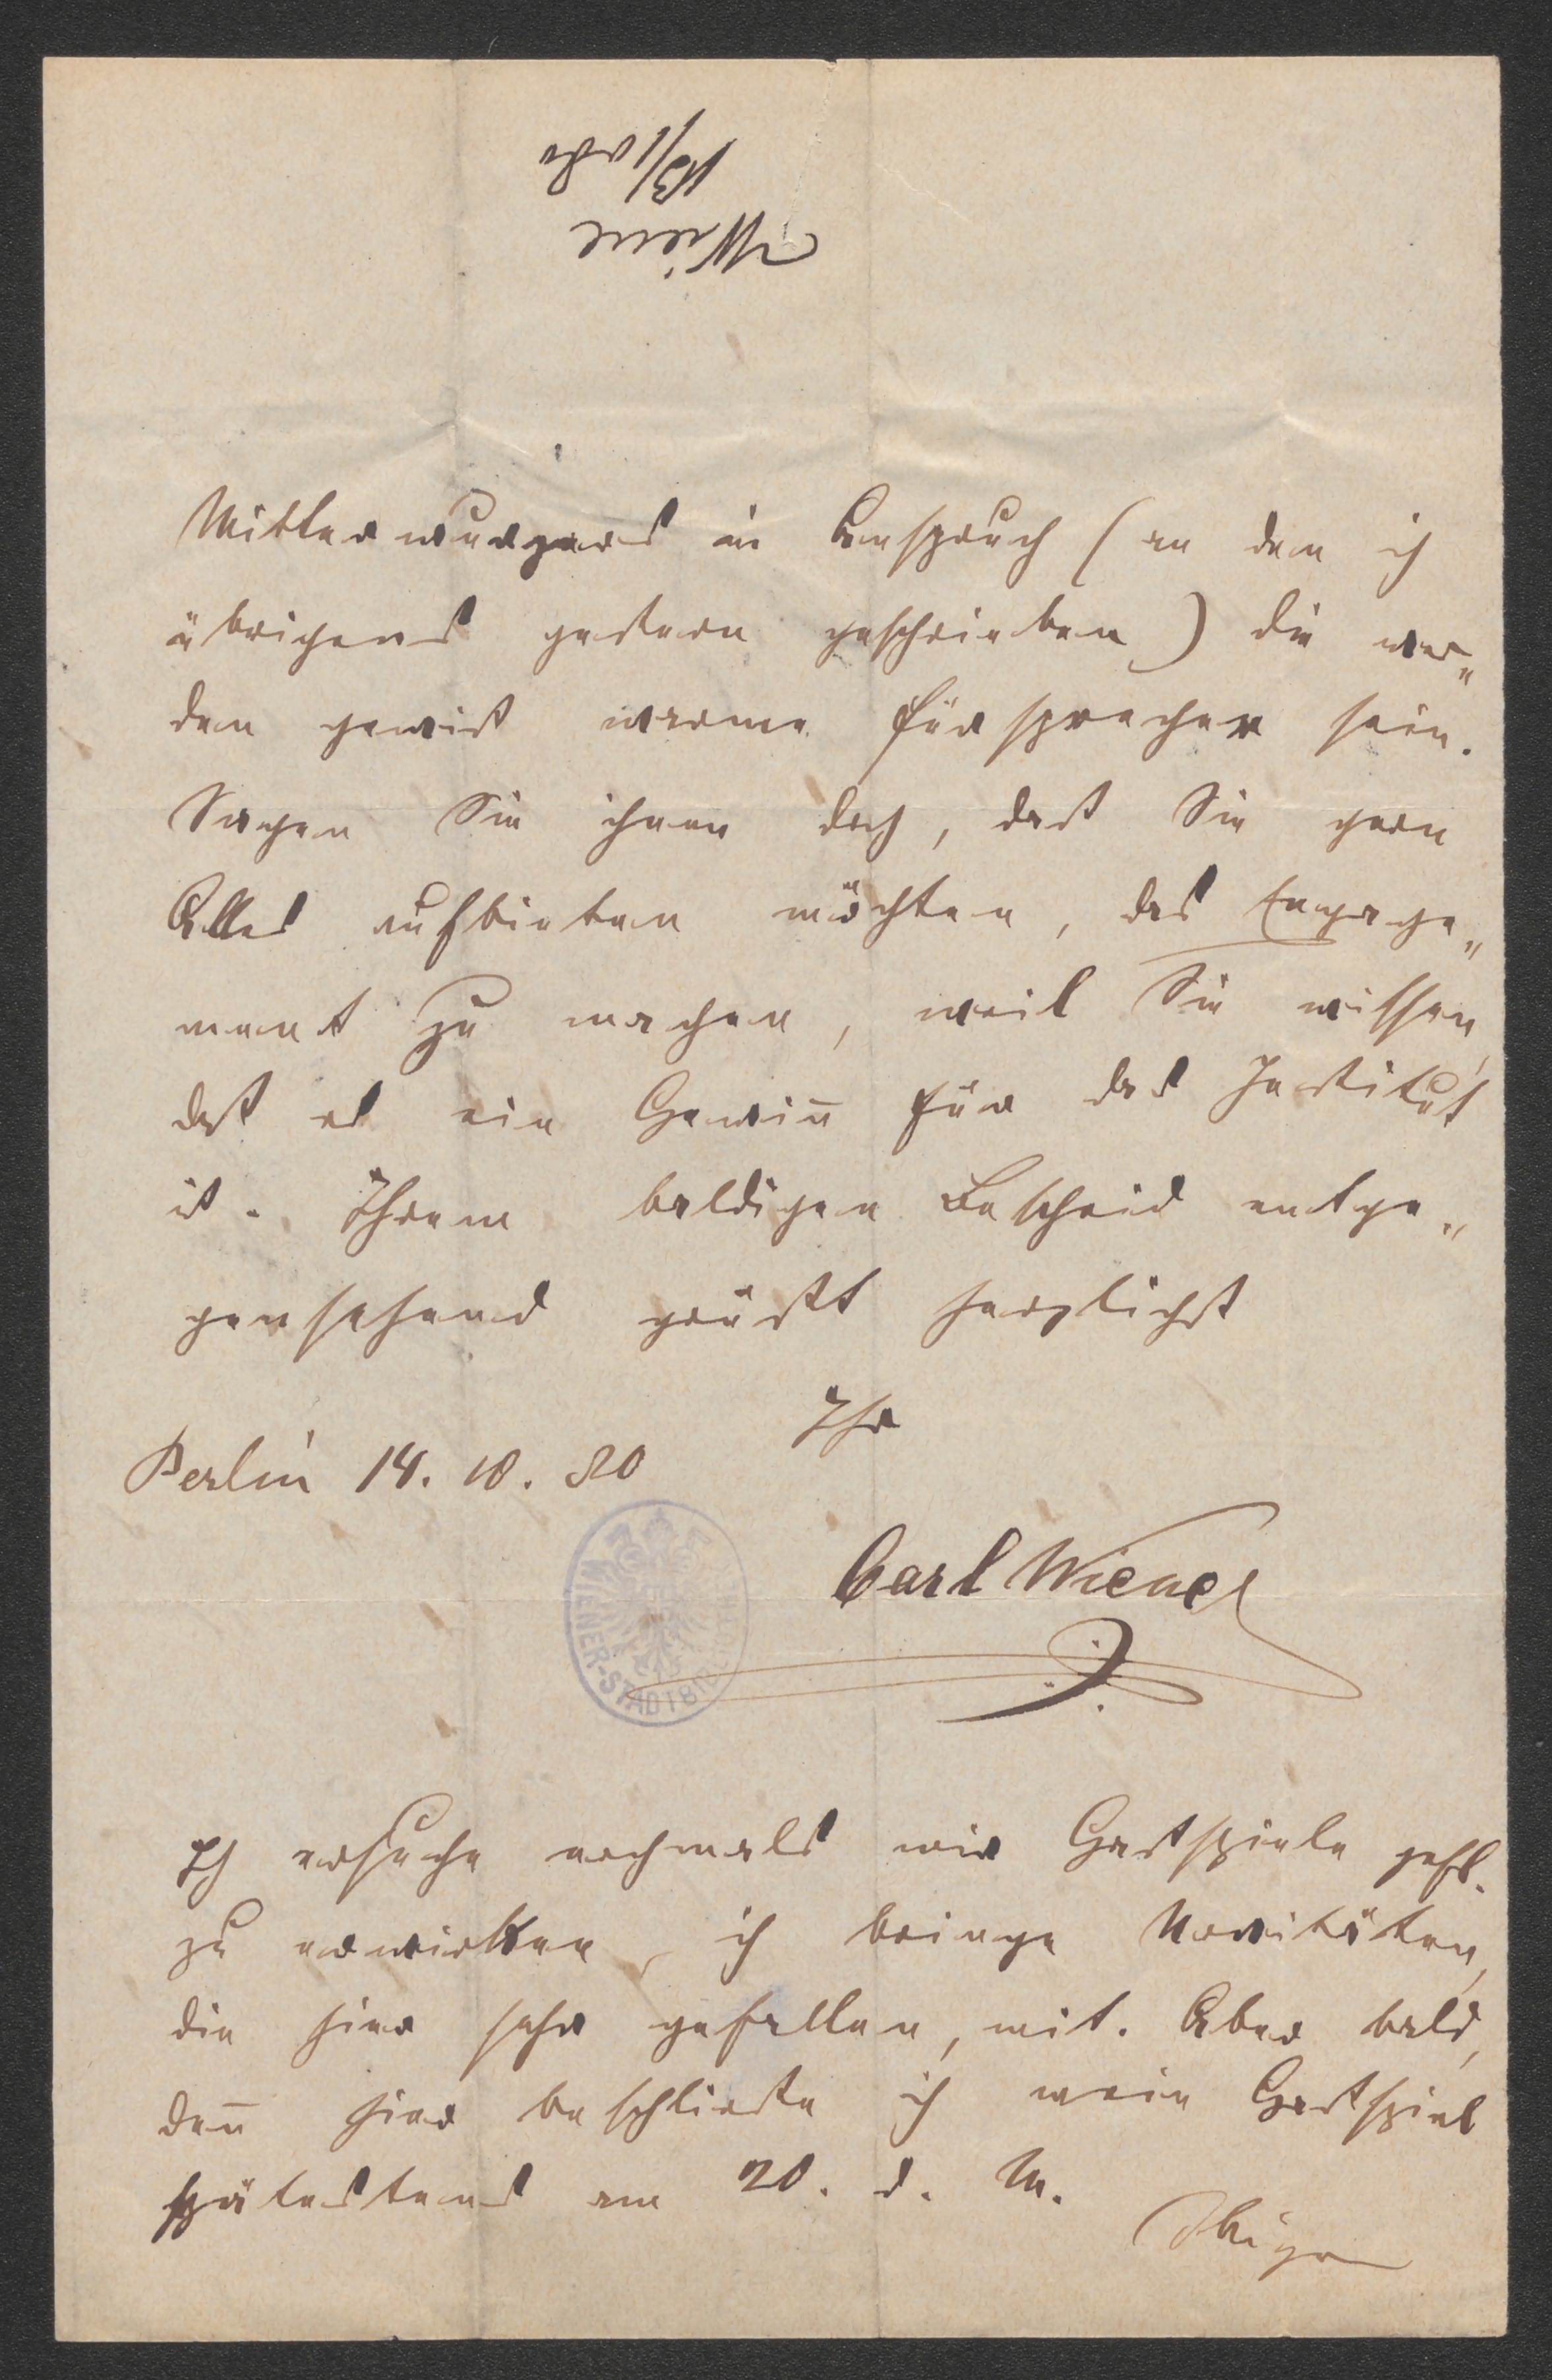 Wiene
13/10 80
Mitterwurzers in Anspruch (an den ich
übrigens gestern geschrieben) die wer„
den gewiß warme Fürsprecher sein.
Sagen Sie ihnen doch, daß Sie gern
Alles aufbieten möchten, das Engage„
ment zu machen, weil Sie wissen,
daß es ein Gewin̄ für das Institut
ist. Ihrem baldigen Bescheid entge„
gensehend grüßt herzlichst
Ihr
Berlin 14. 10. 80
Carl Wiene
WIENER-STADTBIBLIOTHEK
Ich ersuche nochmals mir Gastspiele gefl.
zu erwirken, ich bringe Novitäten,
die hier sehr gefallen, mit. Aber bald,
den̄ hier beschließe ich mein Gastspiel
spätestens am 20. d. M.
Obiger